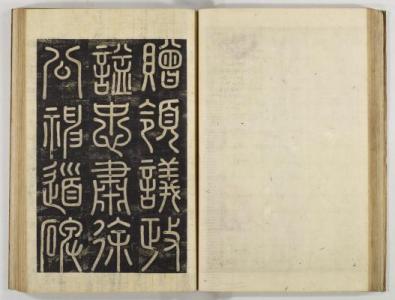 贈領議政
謚忠肅徐
公神道碑